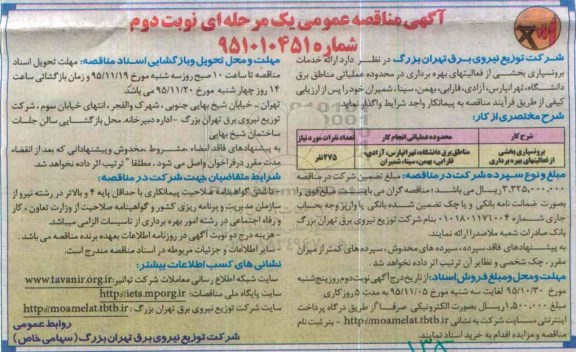 آگهی مناقصه عمومی یک مرحله ای نوبت دوم
شماره ۹۵۱۰۱۰۴۵۱
شرکت توزیع نیروی برق تهران بزرگ در نظر دارد ارائه خدمات
برونسپاری بخشی از فعالیتهای بهره برداری در محدوده عملیاتی مناطق برق
دانشگاه، تهرانپارس، آزادی، فارابی، بهمن، سینا، شمیران خود را پس از ارزیابی
کیفی از طریق فرآیند مناقصه به پیمانکار واجد شرایط واگذار نماید.
شرح مختصری از کار:
شرح کار
محدوده عملیاتی انجام کار
تعداد نفرات مورد نیاز
برونسپاری بخشی
از فعالیتهای بهره برداری
مناطق برق دانشگاه، تهرانپارس، آزادی،
فارابی، بهمن، سینا، شمیران
۲۷۵ نفر
مبلغ و نوع سپرده شرکت در مناقصه: مبلغ تضمین شرکت در مناقصه
۳,۳۲۵,۰۰۰,۰۰۰ ریال می باشد؛ مناقصه گران می بایست مبلغ فوق را
بصورت ضمانت نامه بانکی و یا چک تضمین شده بانکی یا واریز وجه بحساب
جاری شماره ۰۱۰۱۸۰۱۱۷۱۰۰۴ بنام شرکت توزیع نیروی برق تهران بزرگ
بانک صادرات شعبه ملاصدرا ارائه نمایند.
به پیشنهادهای فاقد سپرده، سپرده های مخدوش، سپرده های کمتر از میزان
مقرر، چک شخصی و نظایر آن ترتیب اثر داده نخواهد شد.
مهلت و محل و مبلغ فروش اسناد: از تاریخ درج آگهی نوبت دوم روز پنج شنبه
مورخ ۹۵/۱۰/۳۰ لغایت سه شنبه مورخ ۹۵/۱۱/۰۵ به مدت ۵ روز کاری
مبلغ ۱,۵۰۰,۰۰۰ ریال بصورت الکترونیکی صرفاً از طریق درگاه پرداخت
اینترنتی سایت شرکت به نشانی http://moamelat.tbtb.ir - بنر ثبت نام
مناقصه و مزایده اقدام به خرید اسناد نمایند.
مهلت و محل تحویل و بازگشایی اسناد مناقصه: مهلت تحویل اسناد
مناقصه تا ساعت ۱۰ صبح روز سه شنبه مورخ ۹۵/۱۱/۱۹ و زمان بازگشائی ساعت
۱۴ روز چهار شنبه مورخ ۹۵/۱۱/۲۰ می باشد.
تهران - خیابان شیخ بهایی جنوبی، شهرک والفجر، انتهای خیابان سوم، شرکت
توزیع نیروی برق تهران بزرگ - اداره دبیرخانه. محل بازگشایی سالن جلسات
ساختمان شیخ بهایی
به پیشنهادهای فاقد امضاء، مشروط، مخدوش و پیشنهاداتی که بعد از انقضاء
مدت مقرر در فراخوان واصل می شود، مطلقاً ترتیب اثر داده نخواهد شد.
شرایط متقاضیان جهت شرکت در مناقصه:
- داشتن گواهینامه صلاحیت پیمانکاری با حداقل پایه ۴ و بالاتر در رشته نیرو از
سازمان مدیریت و برنامه ریزی کشور و گواهینامه صلاحیت از وزارت تعاون، کار
و رفاه اجتماعی در رشته امور بهره برداری از تاسیسات الزامی میباشد.
- هزینه درج دو نوبت آگهی در روزنامه اطلاعات بعهده برنده مناقصه می باشد.
- سایر اطلاعات و جزئیات مربوطه در اسناد مناقصه مندرج است.
نشانی های کسب اطلاعات بیشتر:
سایت شبکه اطلاع رسانی معاملات شرکت توانیر: www.tavanir.org.ir
سایت پایگاه ملی مناقصات: http://iets.mporg.ir
سایت شرکت توزیع نیروی برق تهران بزرگ: http://moamelat.tbtb.ir
روابط عمومی
شرکت توزیع نیروی برق تهران بزرگ (سهامی خاص)